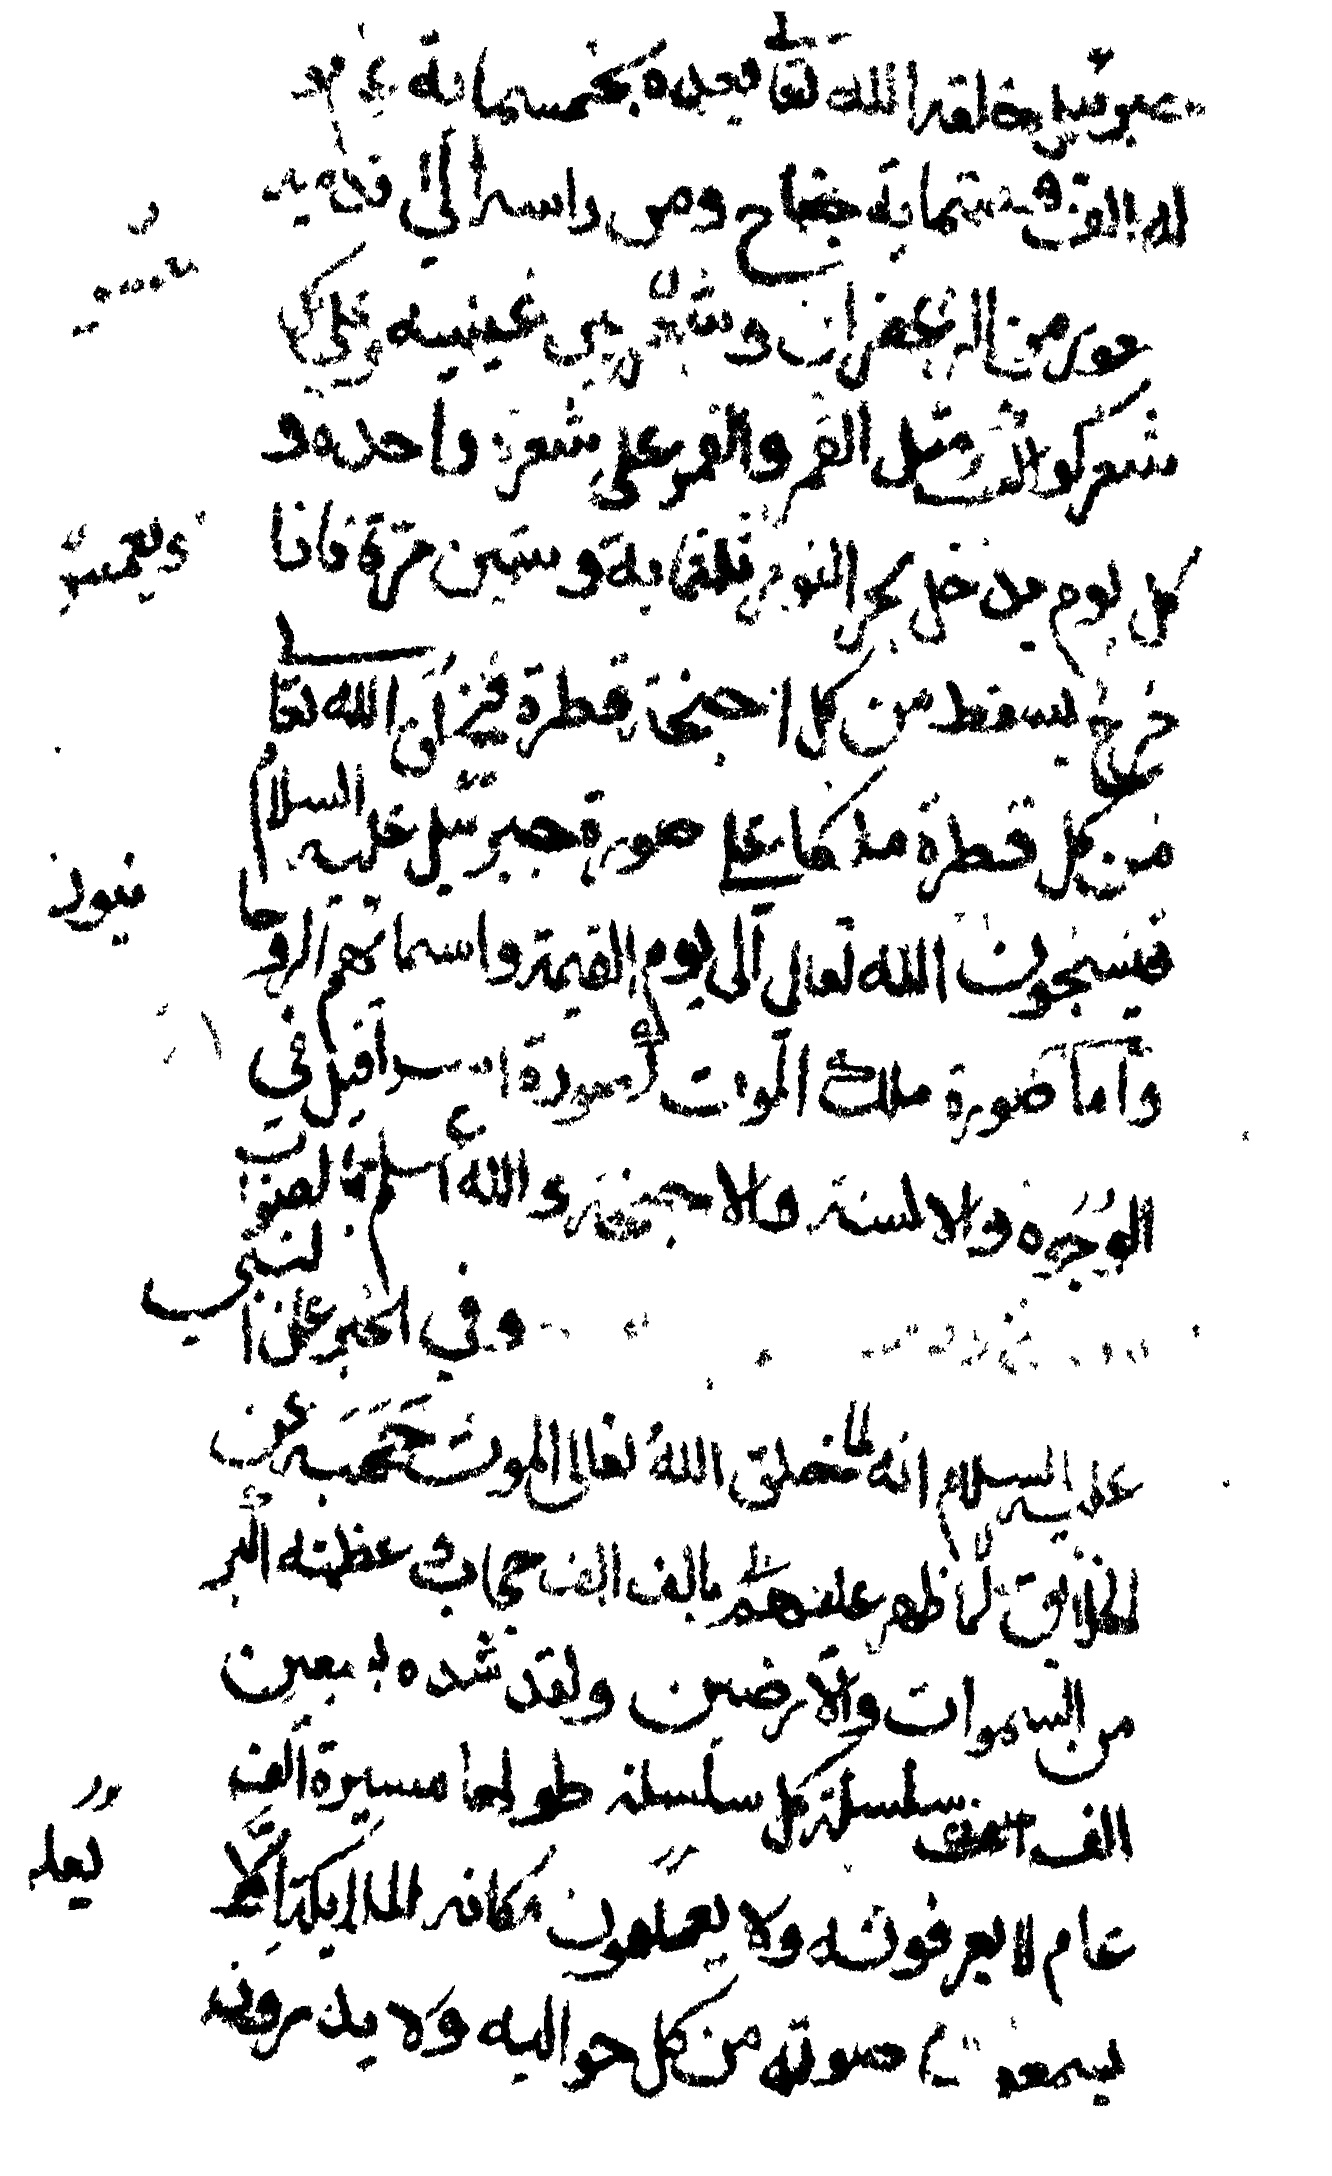 جبرئيل خلقه الله تعالى بعده بخمسماية عام
له الف وستماية جناح ومن راسه الى قدميه
من الزعفران وشمس بين عينيه وعلى كل
شعر كواكب مثل القمر والقمر على شعرة واحدة و
كل يوم يدخل بحر النور ثلثماية وستين مرة فاذا
خرج يسقط من كل اجنحة قطرة فيخلق الله تعالى
من كل قطرة ملكا على صورة جبرئيل عليه السلام
فيسبحون الله تعالى الى يوم القيمة واسمائهم الروحا
نيون
واما صورة ملك الموت كصورة اسرافيل في
الوجوه والالسنة والاجنحة والله اعلم بالصواب
وفي الخبر عن النبي
عليه السلام انه لما خلق الله تعالى الموت حجبه عن
الخلائق لما ظهر عليهم بالف الف حجاب عظمته اكبر
من السموات والارضين ولقد شده بسبعين
الف سلسلة كل سلسلة طولها مسيرة الف
عام لا يعرفونه ولا يعلمون مكانه الملايكة الا
يسمعون صوته من كل حواليه ولا يدرون